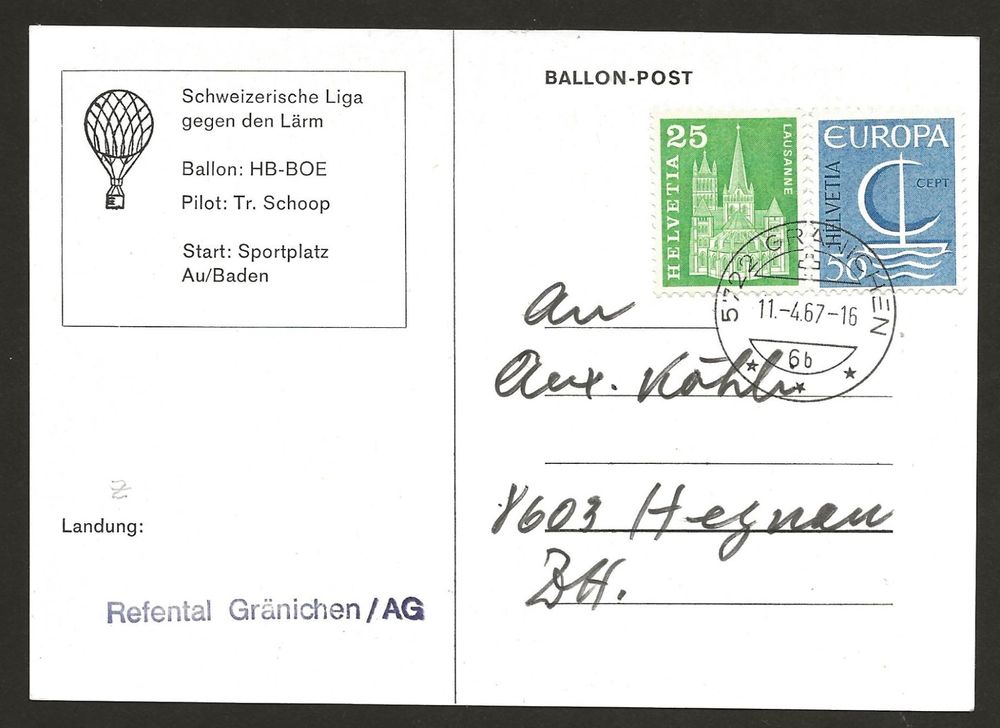 Schweizerische Liga
gegen den Lärm
Ballon: HB-BOE
Pilot: Tr. Schoop
Start: Sportplatz
Au/Baden
Landung:
Refental Gränichen/AG
BALLON-POST
25
HELVETIA
LAUSANNE
EUROPA
CEPT
HELVETIA
50
5722 GRÄNICHEN
11.-4.67-16
6b
An
8603 Hegnau
ZH.